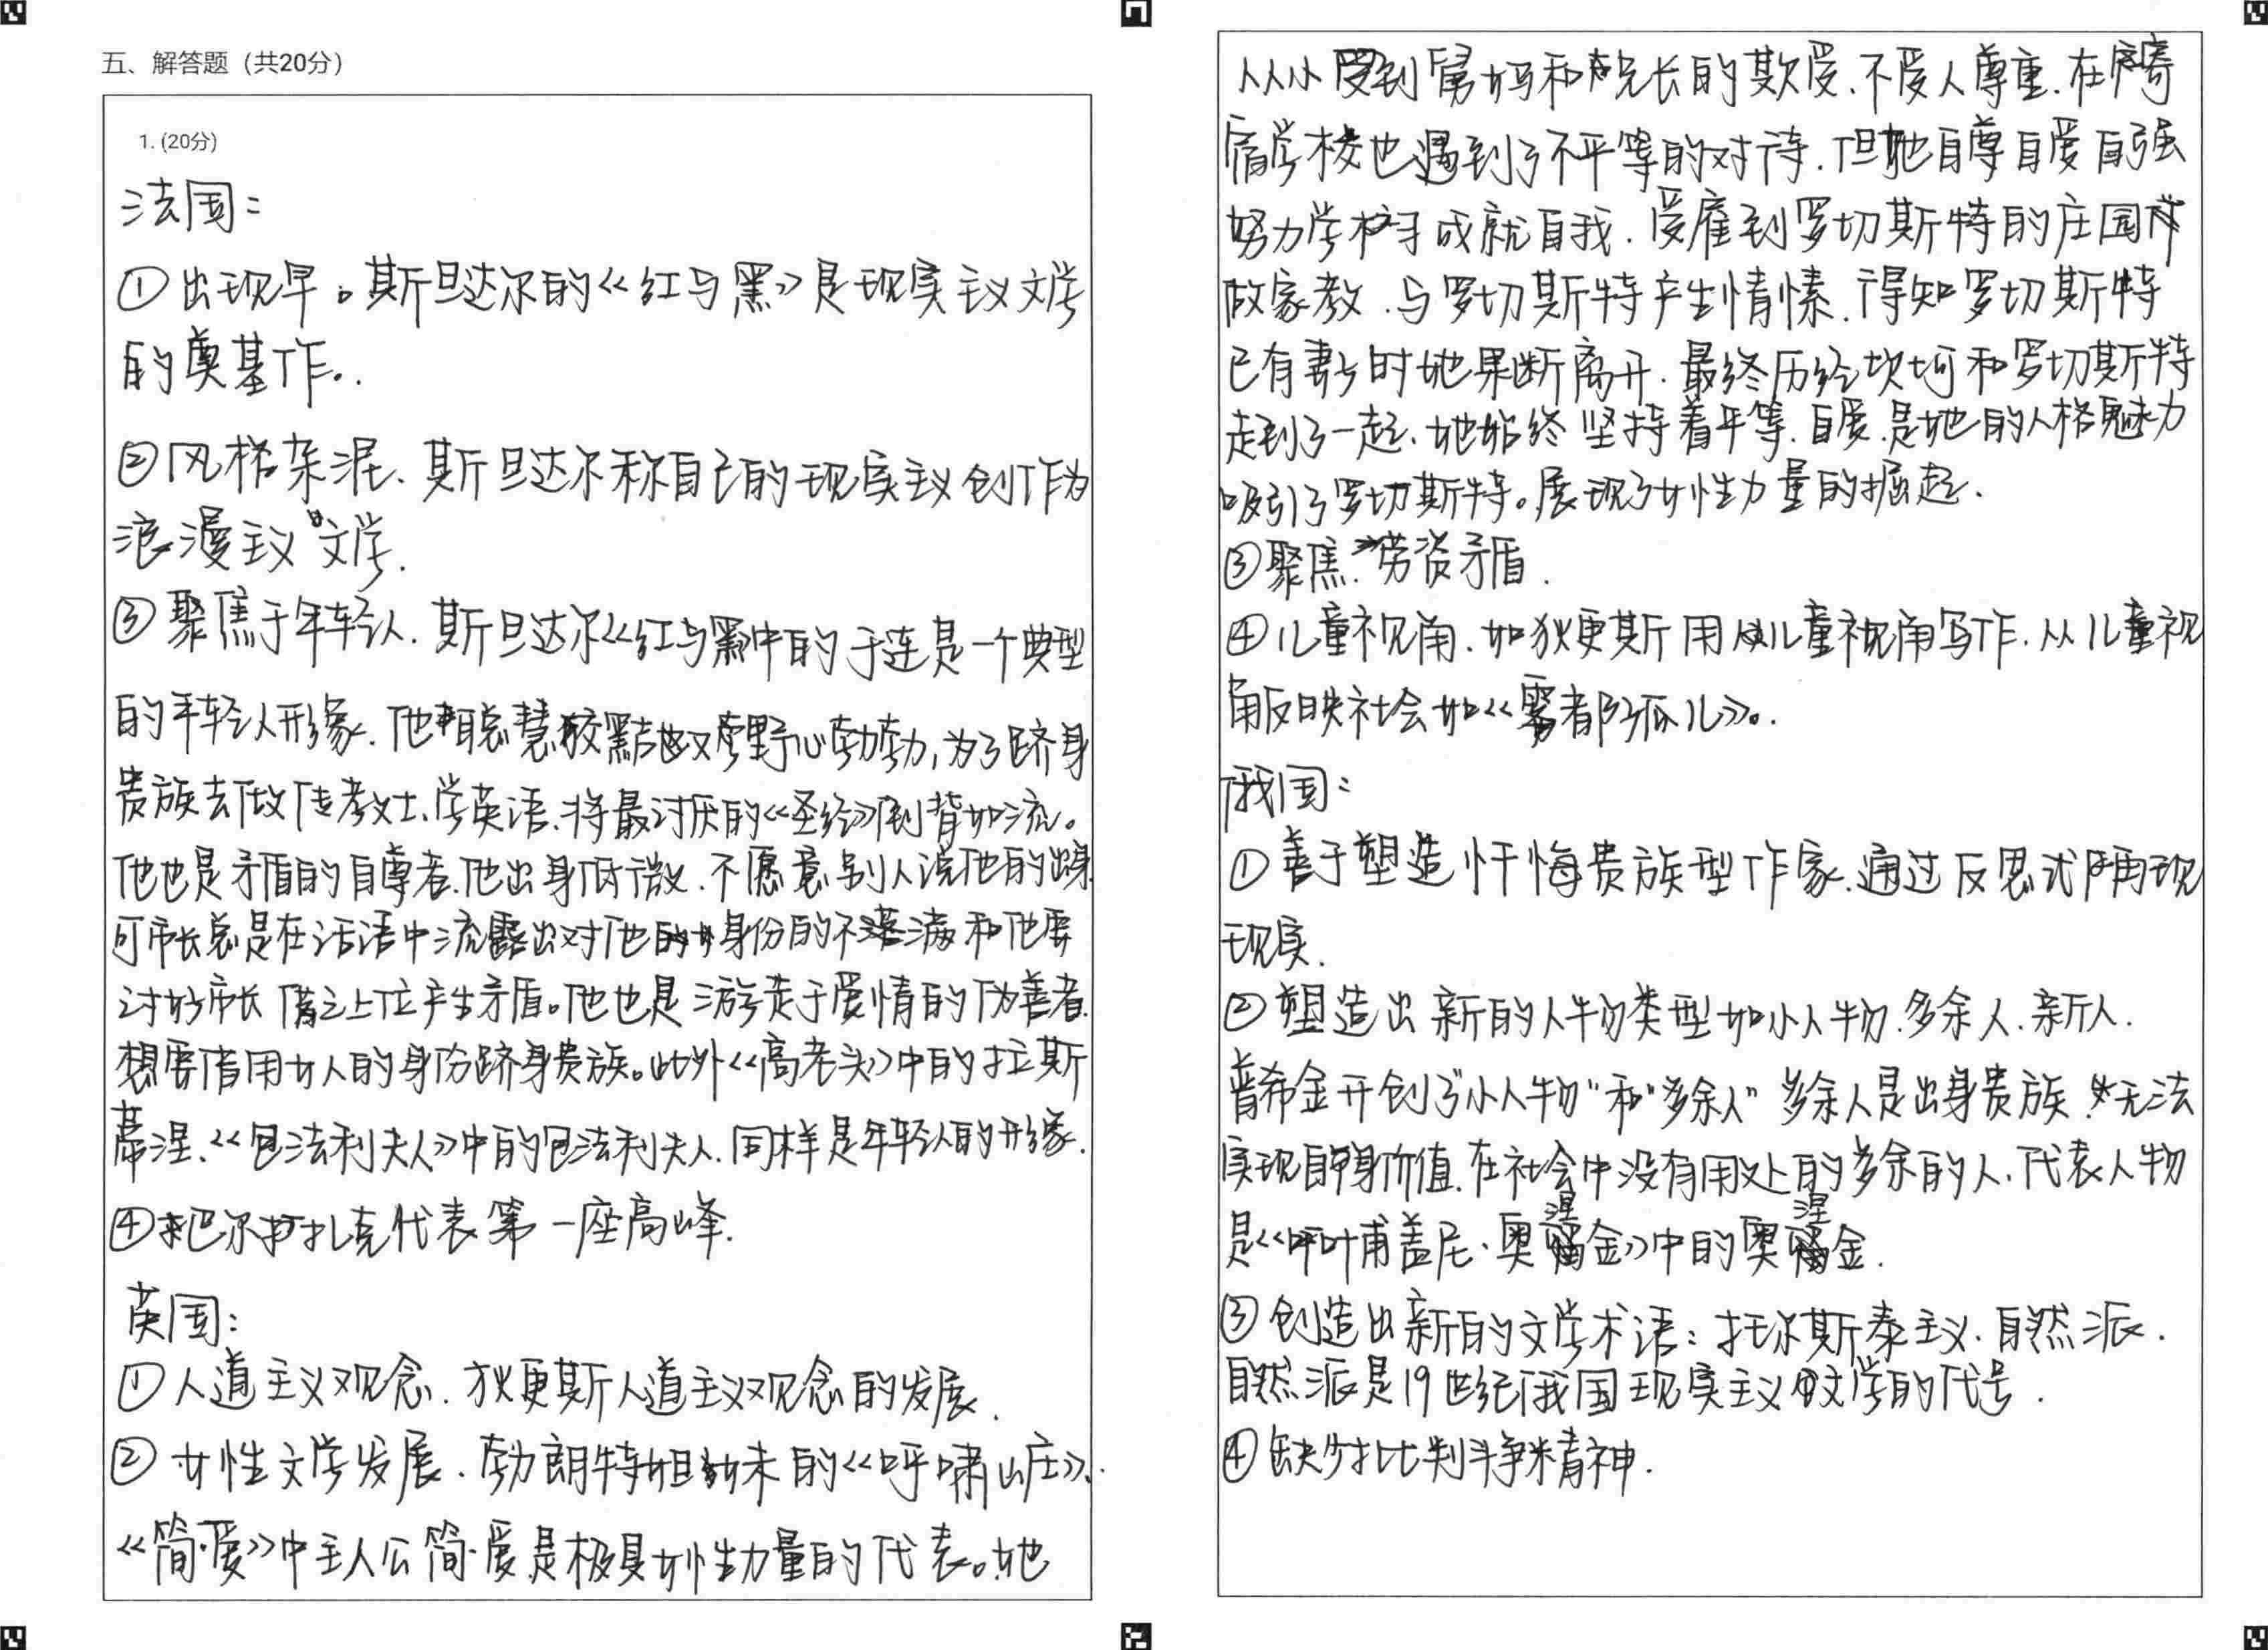 五、解答题（共20分）
1. (20分)
法国：
①出现早。斯旦达尔的《红与黑》是现实主义文学
的奠基作。.
②风格杂混、斯旦达尔称自己的现实主义创作为
浪漫主义文学.
③聚焦于年轻人.斯旦达尔《红与黑》中的于连是一个典型
的年轻人形象.他聪慧狡黠又野心勃勃,为了跻身
贵族去做传教士、学英语、将最讨厌的《圣经》倒背如流。
他也是矛盾的自尊者.他出身低微.不愿意别人说他的出身
可市长总是在话语中流露出对他的身份的不满和他要
讨好市长借之上位产生矛盾。他也是游走于爱情的伪善者.
想要借用女人的身份跻身贵族。此外《高老头》中的拉斯
蒂涅、《包法利夫人》中的包法利夫人.同样是年轻人的形象.
④巴尔扎克代表第一座高峰.
英国：
①人道主义观念.狄更斯人道主义观念的发展.
②女性文学发展.勃朗特姐妹的《呼啸山庄》.
《简·爱》中主人公简·爱是极具女性力量的代表。她
从小受到舅妈和院长的欺受.不受人尊重.在寄
宿学校也遇到了不平等的对待.但她自尊自爱自强
努力学 成就自我.受雇到罗切斯特的庄园
做家教.与罗切斯特产生情愫.得知罗切斯特
已有妻子时她果断离开.最终历经坎坷和罗切斯特
走到了一起.她始终坚持着平等.自爱.是她的人格魅力
吸引了罗切斯特。展现了女性力量的掘起.
③聚焦.劳资矛盾.
④儿童视角.如狄更斯用儿童视角写作.从儿童视
角反映社会如《雾都孤儿》。.
俄国：
①善于塑造忏悔贵族型作家.通过反思式再现
现实.
②塑造出新的人物类型如小人物.多余人.新人.
普希金开创了“小人物”和“多余人”多余人是出身贵族.无法
实现自身价值.在社会中没有用处的多余的人.代表人物
是《叶甫盖尼·奥涅金》中的奥涅金.
③创造出新的文学术语：托尔斯泰主义.自然派.
自然派是19世纪俄国现实主义文学的代号.
④缺少批判斗争精神.